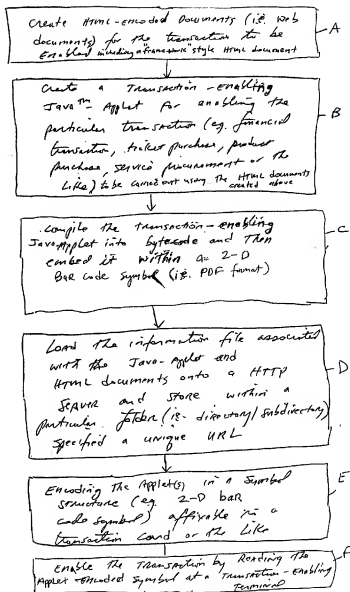 Create Html-Encoded Documents (i.e. Web
documents) for the transaction to be
Enabled including a "framework" style Html document
A
Create a Transaction-Enabling
Java™-Applet for enabling the
particular transaction (eg. financial
transaction, ticket purchase, product
purchase, service procurement or the
Like) to be carried out using the HTML documents
created above
B
Compile the transaction-enabling
Java-Applet into bytecode and Then
embed it within a 2-D
Bar code symbol (i.e. PDF format)
C
Load the information file associated
with the Java-Applet and
HTML documents onto a HTTP
Server and store within a
particular folder (ie- directory/subdirectory)
specified a unique URL
D
Encoding The Applet(s) in a Symbol
structure (eg. 2-D bar
code symbol) affixable in a
transaction card or the Like
E
Enable the Transaction by Reading the
Applet-Encoded Symbol at a Transaction-Enabling
Terminal
F